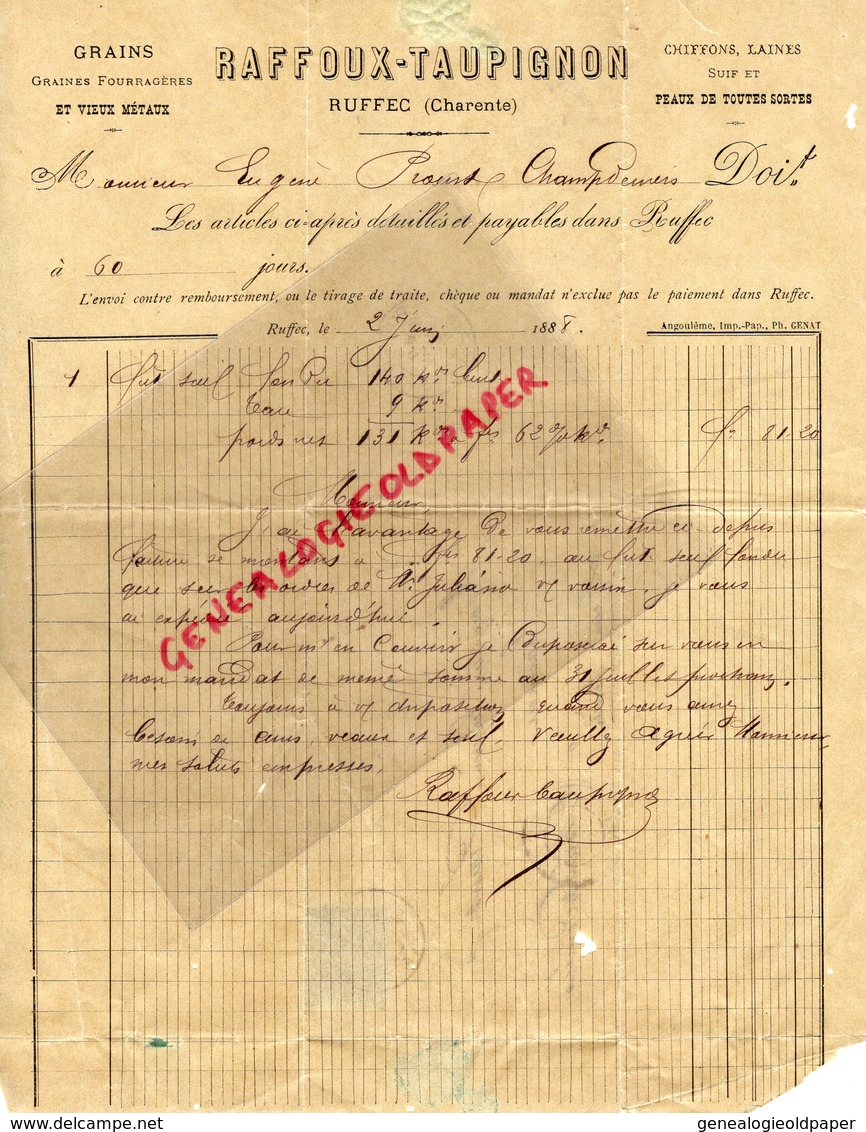 GRAINS
GRAINES FOURRAGÈRES
ET VIEUX MÉTAUX
RAFFOUX-TAUPIGNON
RUFFEC (Charente)
CHIFFONS, LAINES
SUIF ET
PEAUX DE TOUTES SORTES
Monsieur Eugène Champdeniers Doit
Les articles ci-après détaillés et payables dans Ruffec
à 60 jours.
L'envoi contre remboursement, ou le tirage de traite, chèque ou mandat n'exclue pas le paiement dans Ruffec.
Ruffec, le 2 Juin 1888.
Angoulême, Imp.-Pap., Ph. GENAT
1 fût suif fondu 140 Ko brut
Tare 9 Ko
poids net 131 Ko a fs 62 % Ko fs 81-20
Monsieur,
J'ai l'avantage de vous remettre ci-dessus
facture se montant à fs 81-20 au fût suif fondu
que sur les ordres de Mr. voisin, je vous
ai expédié aujourd'hui.
Pour m'en couvrir je disposerai sur vous en
mon mandat de même somme au 31 juillet prochain.
Toujours à disposition quand vous aurez
besoin de cuirs, veaux et suif. Veuillez agréer Monsieur
mes saluts empressés.
Raffoux Taupignon
GENEALOGIEOLDPAPER
delcampe.net
genealogieoldpaper